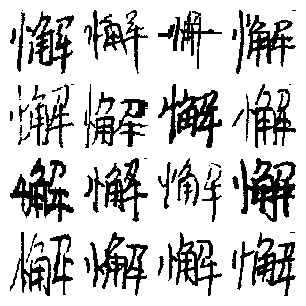 懈懈懈懈
懈懈懈懈
懈懈懈懈
懈懈懈懈